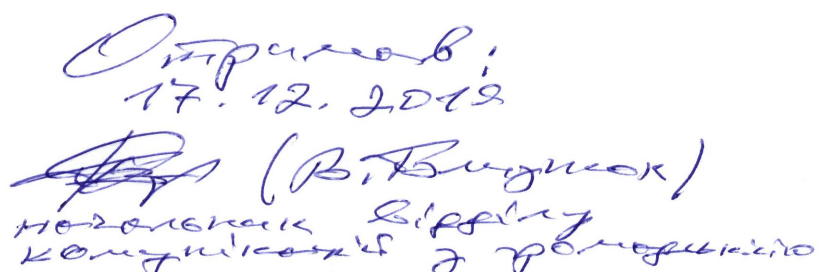 Отримав:
17.12.2019
(В.
начальник відділу
комунікацій з громадськістю